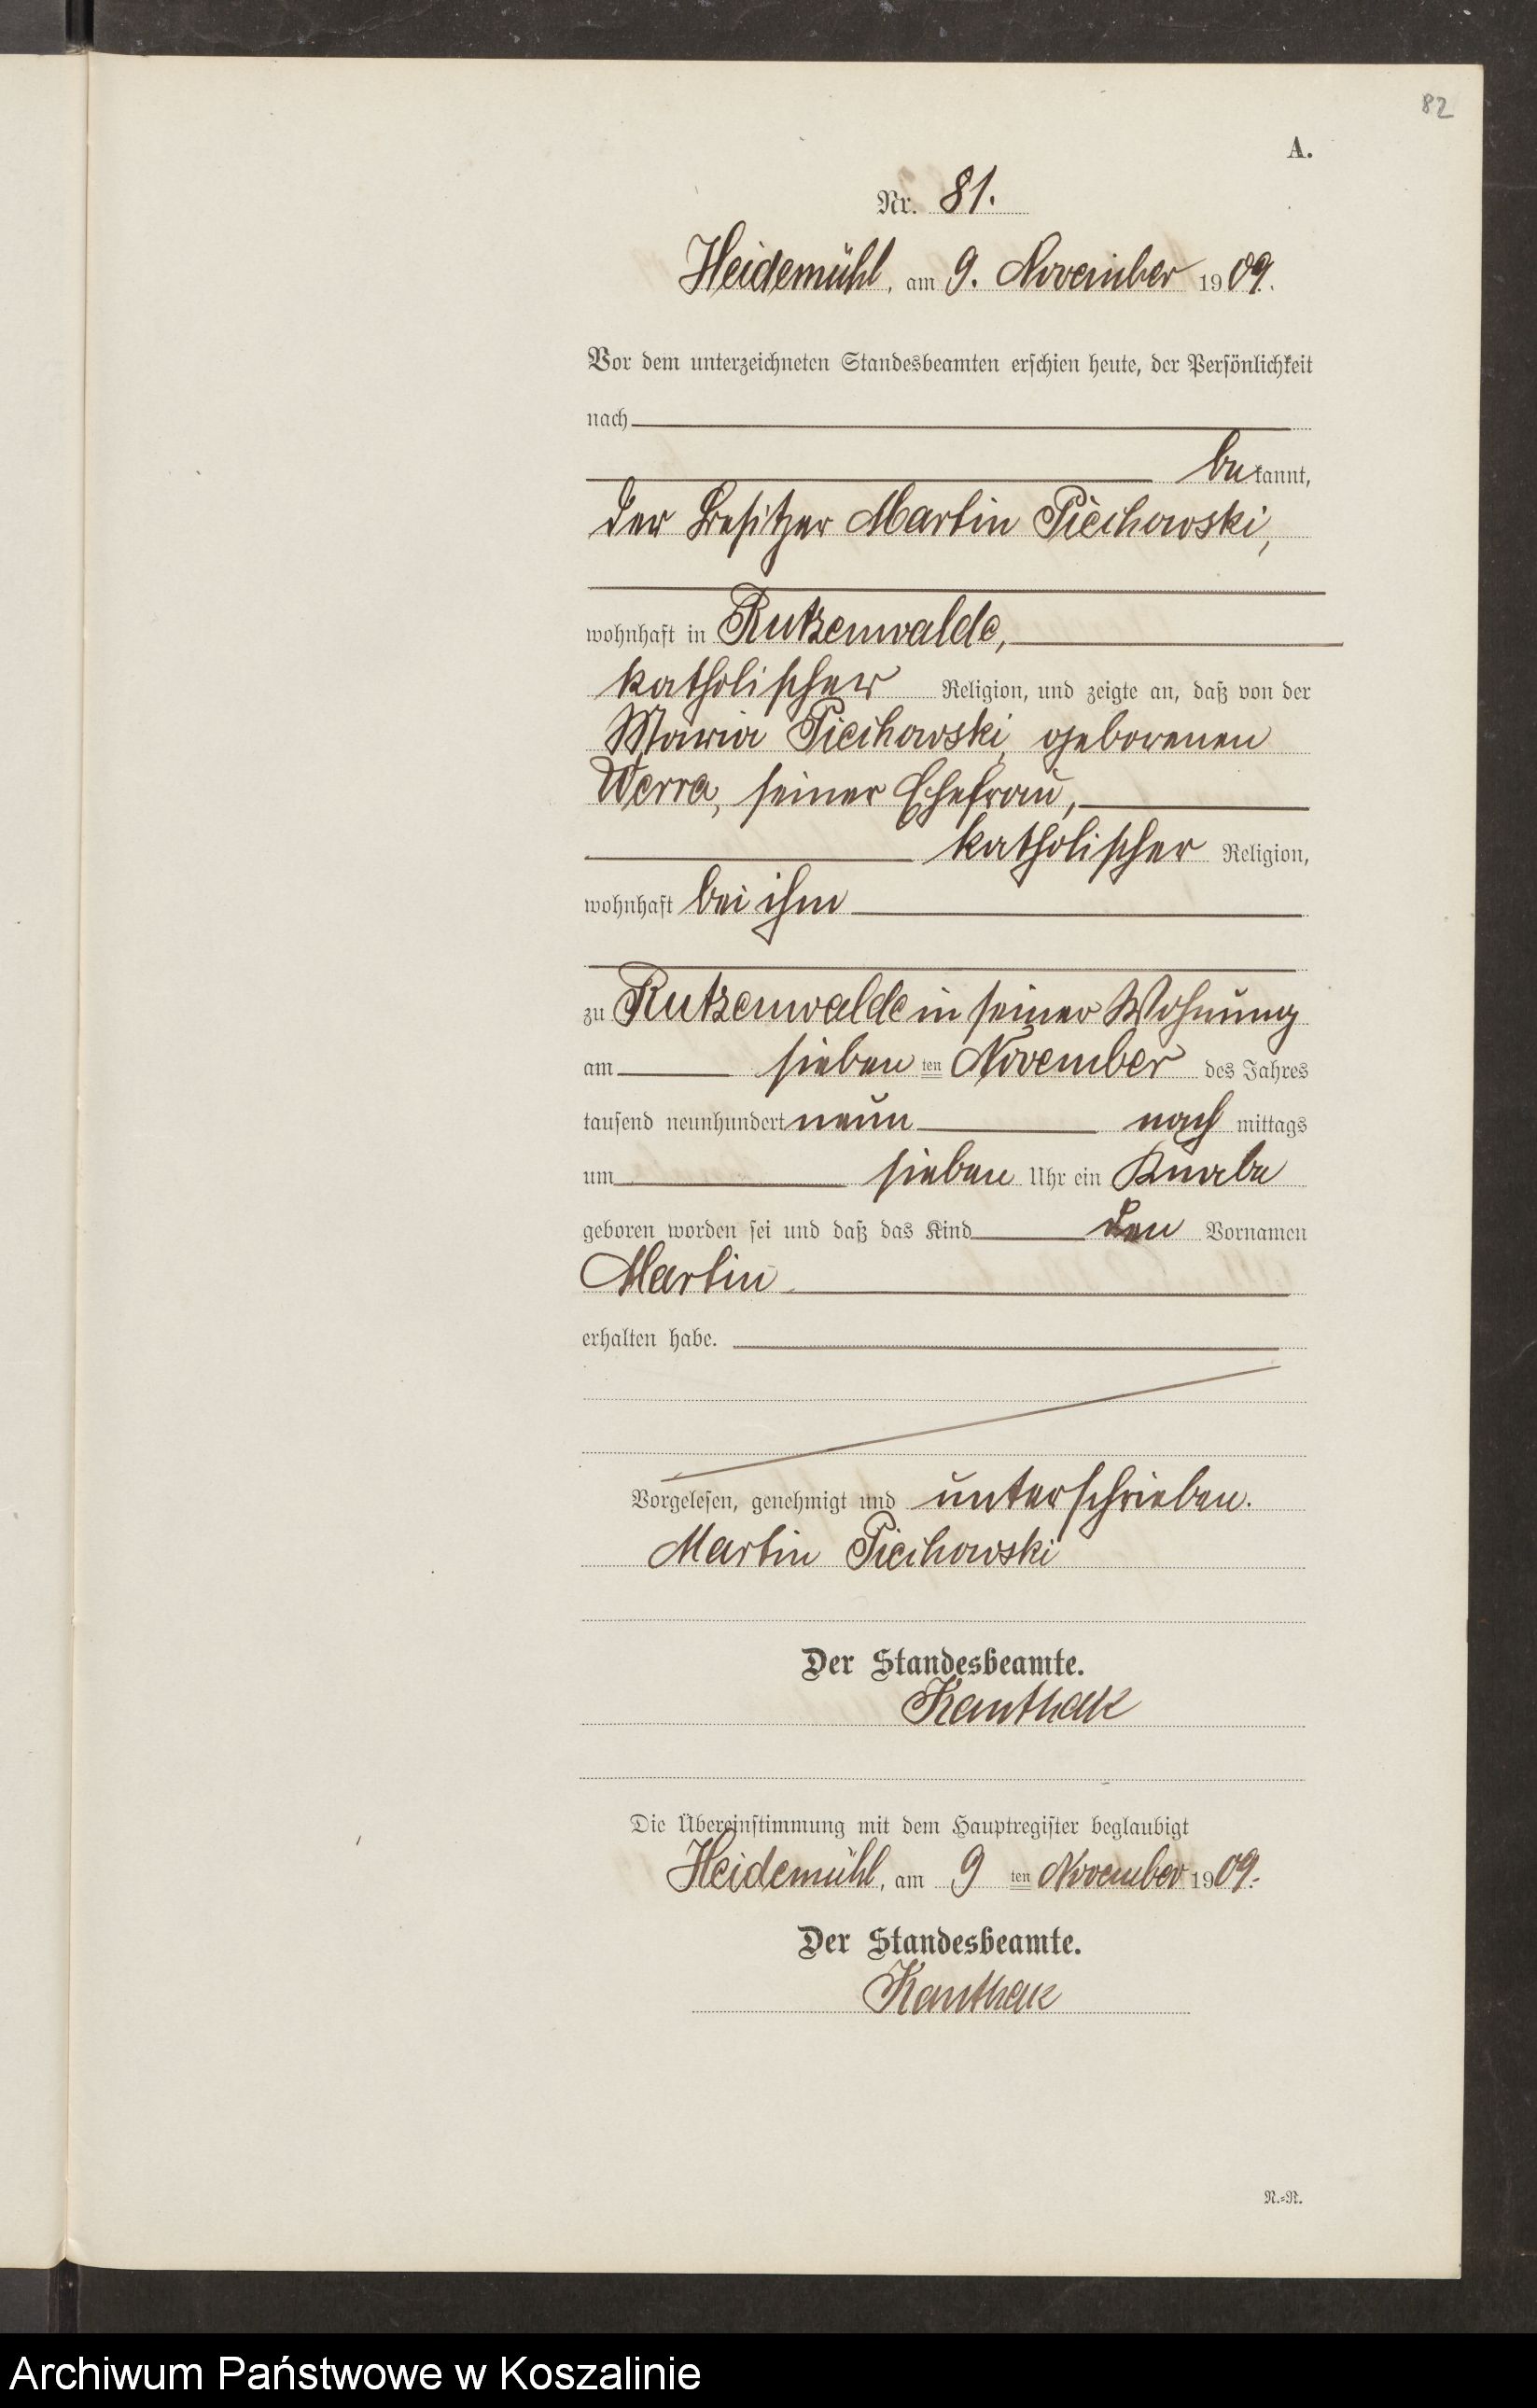 82
A.
Nr. 81.
Heidemühl, am 9. November 1909.
Vor dem unterzeichneten Standesbeamten erschien heute, der Persönlichkeit
nach
bekannt,
der Besitzer Martin Piechowski,
wohnhaft in Rutzenwalde,
katholischer Religion, und zeigte an, daß von der
Maria Piechowski, geborenen
Werra, seiner Ehefrau,
katholischer Religion,
wohnhaft bei ihm
zu Rutzenwalde in seiner Wohnung
am sieben ten November des Jahres
tausend neunhundert neun nach mittags
um sieben Uhr ein Knabe
geboren worden sei und daß das Kind den Vornamen
Martin
erhalten habe.
Vorgelesen, genehmigt und unterschrieben.
Martin Piechowski
Der Standesbeamte.
Kanthak
Die Übereinstimmung mit dem Hauptregister beglaubigt
Heidemühl, am 9 ten November 1909.
Der Standesbeamte.
Kanthak
N.-N.
Archiwum Państwowe w Koszalinie